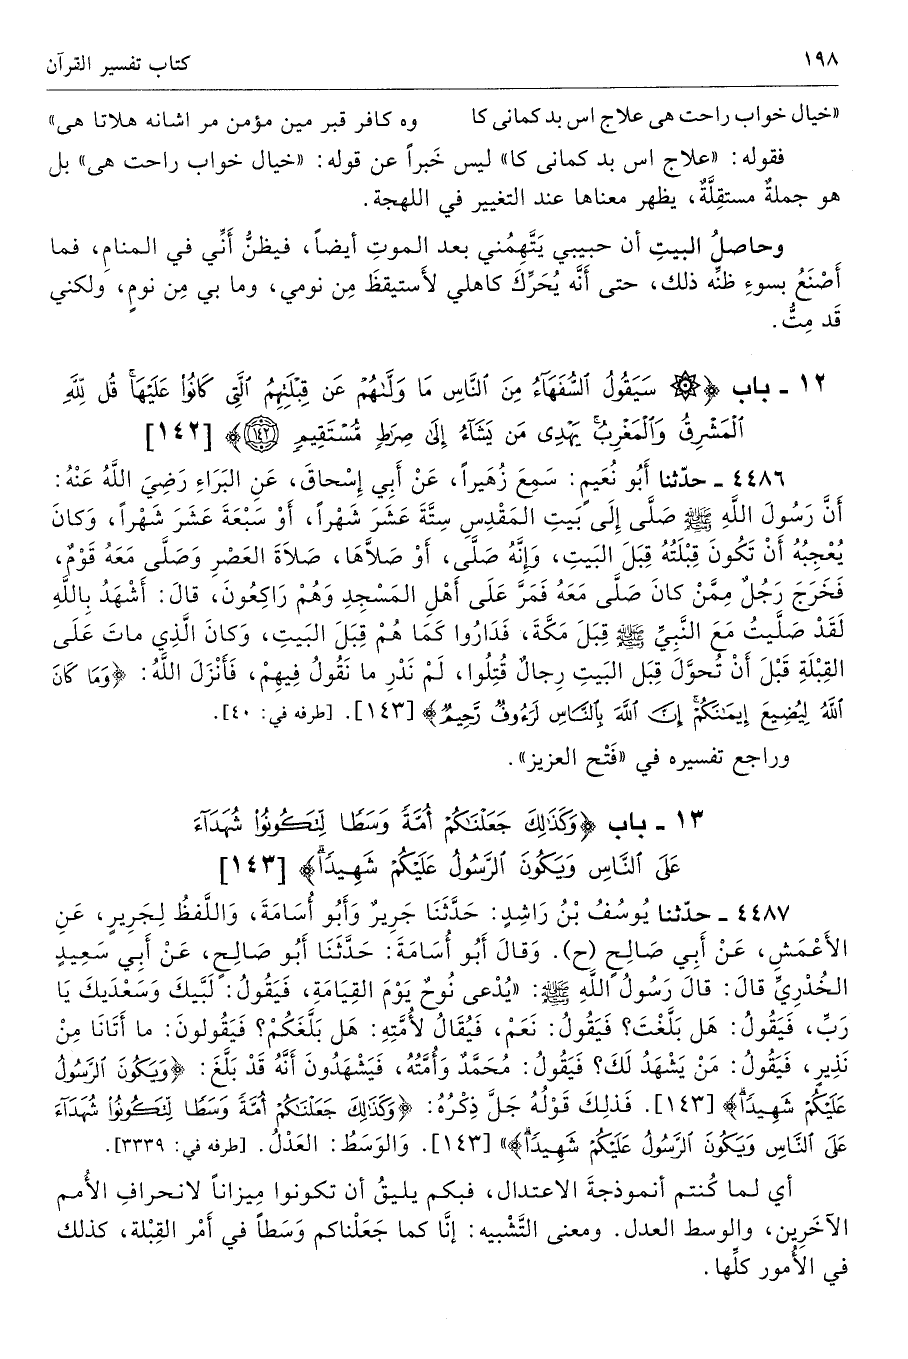 ١٩٨ كتاب تفسير القرآن
«خيال خواب راحت هى علاج اس بد كمانى كا وه كافر قبر مين مؤمن مر اشانه هلاتا هى»
فقوله: «علاج اس بد كمانى كا» ليس خَبراً عن قوله: «خيال خواب راحت هى» بل
هو جملةٌ مستقِلَّةٌ، يظهر معناها عند التغيير في اللهجة.
وحاصلُ البيتِ أن حبيبي يَتَّهِمُني بعد الموتِ أيضاً، فيظنُّ أَنِّي في المنامِ، فما
أَصْنَعُ بسوءِ ظنِّه ذلك، حتى أَنَّه يُحَرِّكَ كاهلي لأستيقظَ مِن نومي، وما بي مِن نومٍ، ولكني
قَد مِتُّ.
١٢ ـ باب ﴿۞ سَيَقُولُ ٱلسُّفَهَآءُ مِنَ ٱلنَّاسِ مَا وَلَّىٰهُمْ عَن قِبْلَتِهِمُ ٱلَّتِى كَانُوا۟ عَلَيْهَا ۚ قُل لِّلَّهِ
ٱلْمَشْرِقُ وَٱلْمَغْرِبُ ۚ يَهْدِى مَن يَشَآءُ إِلَىٰ صِرَٰطٍ مُّسْتَقِيمٍ ١٤٢﴾ [١٤٢]
٤٤٨٦ ـ حدّثنا أَبُو نُعَيمٍ: سَمِعَ زُهَيراً، عَنْ أَبِي إِسْحاقَ، عَنِ البَرَاءِ رَضِيَ اللَّهُ عَنْهُ:
أَنَّ رَسُولَ اللَّهِ ﷺ صَلَّى إِلَى بَيتِ المَقْدِسِ سِتَّةَ عَشَرَ شَهْراً، أَوْ سَبْعَةَ عَشَرَ شَهْراً، وَكانَ
يُعْجِبُهُ أَنْ تَكُونَ قِبْلَتُهُ قِبَلَ البَيتِ، وَإِنَّهُ صَلَّى، أَوْ صَلاَّهَا، صَلاَةَ العَصْرِ وَصَلَّى مَعَهُ قَوْمٌ،
فَخَرَجَ رَجُلٌ مِمَّنْ كانَ صَلَّى مَعَهُ فَمَرَّ عَلَى أَهْلِ المَسْجِدِ وَهُمْ رَاكِعُونَ، قالَ: أَشْهَدُ بِاللَّهِ
لَقَدْ صَلَّيتُ مَعَ النَّبِيِّ ﷺ قِبَلَ مَكَّةَ، فَدَارُوا كَمَا هُمْ قِبَلَ البَيتِ، وَكانَ الَّذِي ماتَ عَلَى
القِبْلَةِ قَبْلَ أَنْ تُحوَّلَ قِبَل البَيتِ رِجالٌ قُتِلُوا، لَمْ نَدْرِ ما نَقُولُ فِيهِمْ، فَأَنْزَلَ اللَّهُ: ﴿وَمَا كَانَ
ٱللَّهُ لِيُضِيعَ إِيمَٰنَكُمْ ۚ إِنَّ ٱللَّهَ بِٱلنَّاسِ لَرَءُوفٌ رَّحِيمٌ﴾ [١٤٣]. [طرفه في: ٤٠].
وراجع تفسيره في «فَتْح العزيز».
١٣ ـ باب ﴿وَكَذَٰلِكَ جَعَلْنَٰكُمْ أُمَّةً وَسَطًا لِّتَكُونُوا۟ شُهَدَآءَ
عَلَى ٱلنَّاسِ وَيَكُونَ ٱلرَّسُولُ عَلَيْكُمْ شَهِيدًا ۗ﴾ [١٤٣]
٤٤٨٧ ـ حدّثنا يُوسُفُ بْنُ رَاشِدٍ: حَدَّثَنَا جَرِيرٌ وَأَبُو أُسَامَةَ، وَاللَّفظُ لِجَرِيرٍ، عَنِ
الأَعْمَشِ، عَنْ أَبِي صَالِحٍ (ح). وَقالَ أَبُو أُسَامَةَ: حَدَّثَنَا أَبُو صَالِحٍ، عَنْ أَبِي سَعِيدٍ
الخُدْرِيِّ قالَ: قالَ رَسُولُ اللَّهِ ﷺ: «يُدْعى نُوحٌ يَوْمَ القِيَامَةِ، فَيَقُولُ: لَبَّيكَ وَسَعْدَيكَ يَا
رَبِّ، فَيَقُولُ: هَل بَلَّغْتَ؟ فَيَقُولُ: نَعَمْ، فَيُقَالُ لأُمَّتِهِ: هَل بَلَّغَكُمْ؟ فَيَقُولونَ: ما أَتَانَا مِنْ
نَذِيرٍ، فَيَقُولُ: مَنْ يَشْهَدُ لَكَ؟ فَيَقُولُ: مُحَمَّدٌ وَأُمَّتُهُ، فَيَشْهَدُونَ أَنَّهُ قَدْ بَلَّغَ: ﴿وَيَكُونَ ٱلرَّسُولُ
عَلَيْكُمْ شَهِيدًا ۗ﴾ [١٤٣]. فَذلِكَ قَوْلُهُ جَلَّ ذِكْرُهُ: ﴿وَكَذَٰلِكَ جَعَلْنَٰكُمْ أُمَّةً وَسَطًا لِّتَكُونُوا۟ شُهَدَآءَ
عَلَى ٱلنَّاسِ وَيَكُونَ ٱلرَّسُولُ عَلَيْكُمْ شَهِيدًا ۗ﴾» [١٤٣]. وَالوَسَطُ: العَدْلُ. [طرفه في: ٣٣٣٩].
أي لما كُنتم أنموذجةَ الاعتدال، فبكم يليقُ أن تكونوا مِيزاناً لانحرافِ الأُمم
الآخَرِين، والوسط العدل. ومعنى التَّشْبيه: إنَّا كما جَعَلْناكم وَسَطاً في أَمْر القِبْلة، كذلك
في الأُمور كلِّها.